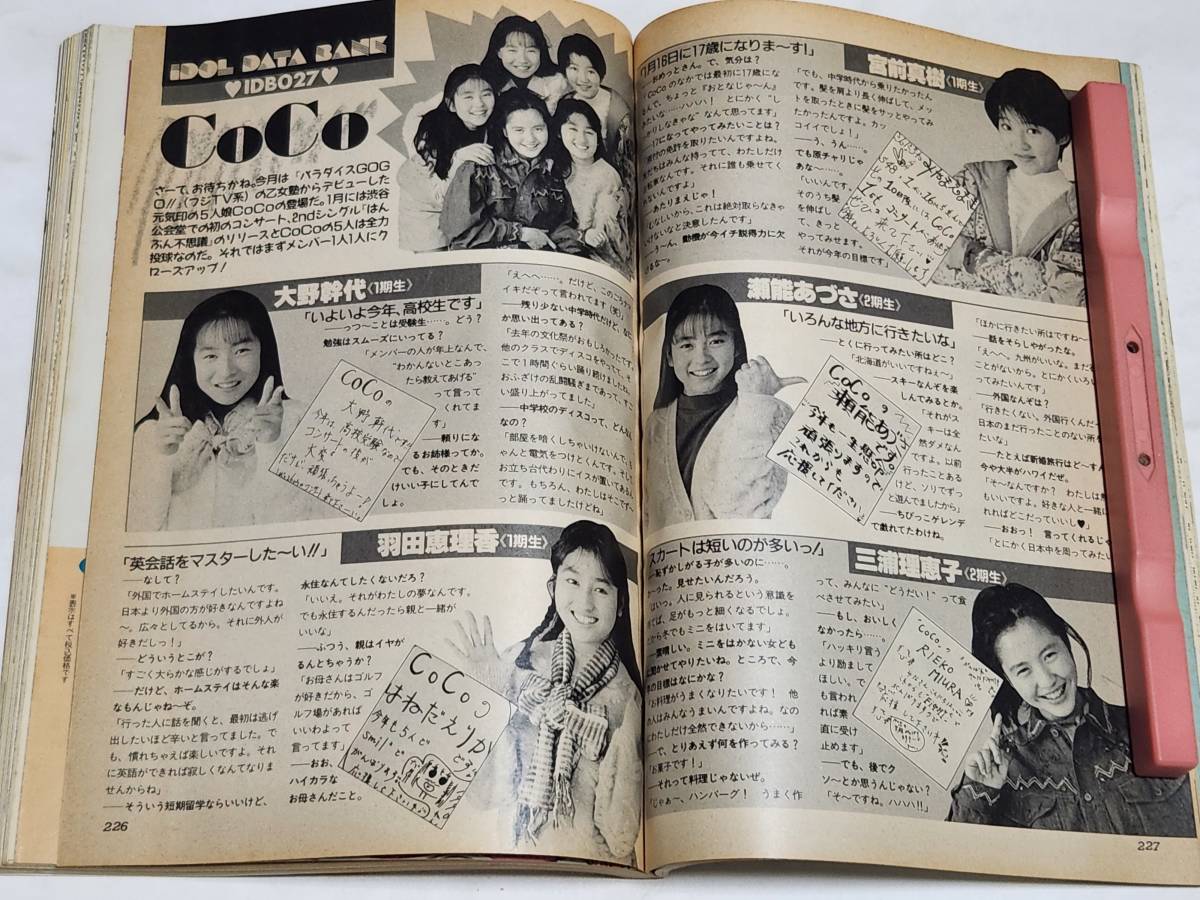 IDOL DATA BANK
♥IDB027♥
CoCo
さーて、お待ちかね。今月は『パラダイスGOG
O!!』(フジTV系)の乙女塾からデビューした
元気印の5人娘CoCoの登場だ。1月には渋谷
公会堂での初のコンサート、2ndシングル『はん
ぶん不思議』のリリースとCoCoの5人は全力
投球なのだ。それではまずメンバー1人1人にク
ローズアップ!
大野幹代〈1期生〉
「いよいよ今年、高校生です」
——っつ〜ことは受験生……。どう?
勉強はスムーズにいってる?
「メンバーの人が年上なんで、
“わかんないとこあっ
たら教えてあげる”
って言って
くれてま
す」
——頼りにな
るお姉様ってか。
でも、そのときだ
けいい子にしてんで
しょ。
「えへへ……。だけど、このごろナマ
イキだぞって言われてます(笑)」
——残り少ない中学時代だけど、なに
か思い出ってある?
「去年の文化祭がおもしろかったです。
他のクラスでディスコをやってて、そ
こで1時間ぐらい踊り続けましたね。
おふざけの乱闘騒ぎまであって、すご
い盛り上がってました」
——中学校のディスコって、どんな
なの?
「部屋を暗くしちゃいけないんで、ち
ゃんと電気をつけとくんです。そして
お立ち台代わりにイスが置いてあるん
です。もちろん、わたしはそこでず〜
っと踊ってましたけどね」
CoCoの
大野幹代です。
今年は高校受験なので
コンサートの後が
大変
だけど頑張っちゃうよー!
羽田恵理香〈1期生〉
「英会話をマスターした〜い!!」
——なして?
「外国でホームステイしたいんです。
日本より外国の方が好きなんですよね
〜。広々としてるから。それに外人が
好きだしっ!」
——どういうとこが?
「すごく大らかな感じがするでしょ」
——だけど、ホームステイはそんな楽
なもんじゃね〜ぞ。
「行った人に話を聞くと、最初は逃げ
出したいほど辛いと言ってました。で
も、慣れちゃえば楽しいですよ。それ
に英語ができれば寂しくなんてなりま
せんからね」
——そういう短期留学ならいいけど、
永住なんてしたくないだろ?
「いいえ。それがわたしの夢なんです。
でも永住するんだったら親と一緒が
いいな」
——ふつう、親はイヤが
るんとちゃうか?
「お母さんはゴルフ
が好きだから、ゴ
ルフ場があれば
いいわよって
言ってます」
——おお、
ハイカラな
お母さんだこと。
CoCoの
はねだえりか
です
今年も5人で
smileで
がんばります
226
※表示はすべて税込価格です
宮前真樹〈1期生〉
「1月16日に17歳になりま〜す!」
——おめっとさん。で、気分は?
「CoCoのなかでは最初に17歳にな
んで、ちょっと『おとなじゃ〜ん』
みたいな……ハハハ! とにかく“し
っかりしなきゃ”なんて思ってます」
——17になってやってみたいことは?
付の免許を取りたいんですよ。
だちはみんな持ってて、わたしだけ
転車なんです。それに誰も乗せてく
ないんですよ」
——あたりまえじゃ!
しないから、これは絶対取らなきゃ
けないなと決意したんです」
——う〜ん、動機が今イチ説得力に欠
けるな〜。
「でも、中学時代から乗りたかったん
です。髪を肩より長く伸ばして、メッ
トを取ったときに髪をサッとやってみ
たかったんですよ。カッ
コイイでしょ!」
——う、うん……。
でも原チャリじゃ
あな〜……。
「いいんです。
そのうち髪
を伸ばし
て、きっと
やってみせます。
それが今年の目標です」
瀬能あづさ〈2期生〉
「いろんな地方に行きたいな」
——とくに行ってみたい所はどこ?
「北海道がいいですねぇ〜」
——スキーなんぞを楽
しんでみるとか。
「それがス
キーは全
然ダメなん
ですよ。以前
行ったことある
けど、ソリでずっ
と遊んでましたから」
——ちびっこゲレンデ
で戯れてたわけね。
「ほかに行きたい所はですね〜
——話をそらしやがったな。
「えへへ。九州がいいな。まだ
ことがないから。とにかくいろい
ってみたいんです」
——外国なんぞは?
「行きたくない。外国行くんだっ
日本のまだ行ったことのない所を
たいな」
——たとえば新婚旅行はど〜す
今や大半がハワイだぜ。
「そ〜なんですか? わたしは無
もいいですよ。好きな人と一緒に
れればどこだっていいし♥」
——おおっ! 言ってくれるじゃ
「とにかく日本中を周ってみたい
CoCoの
瀬能あづさ
です。
今年も一生懸命
頑張りますので
これからも
応援してください。
三浦理恵子〈2期生〉
スカートは短いのが多いっ!」
——恥ずかしがる子が多いのに……。
か〜った。見せたいんだろう。
「はいっ。人に見られるという意識を
てば、足がもっと細くなるでしょ。
だから冬でもミニをはいてます」
——素晴しい。ミニをはかない女ども
に聞かせてやりたいね。ところで、今
年の目標はなにかな?
「お料理がうまくなりたいです! 他
の人はみんなうまいんですよね。なの
にわたしだけ全然できないから……」
——で、とりあえず何を作ってみる?
「お菓子です!」
——それって料理じゃないぜ。
「じゃあ〜、ハンバーグ! うまく作
って、みんなに“どうだい!”って食
べさせてみたい」
——もし、おいし
くなかったら……。
「ハッキリ言
うより励まして
ほしい。で
も言われ
れば素
直に受け
止めます」
——でも、後でク
ソ〜とか思うんじゃない?
「そ〜ですね。ハハハ!!」
“CoCoの
RIEKO
MIURA
227